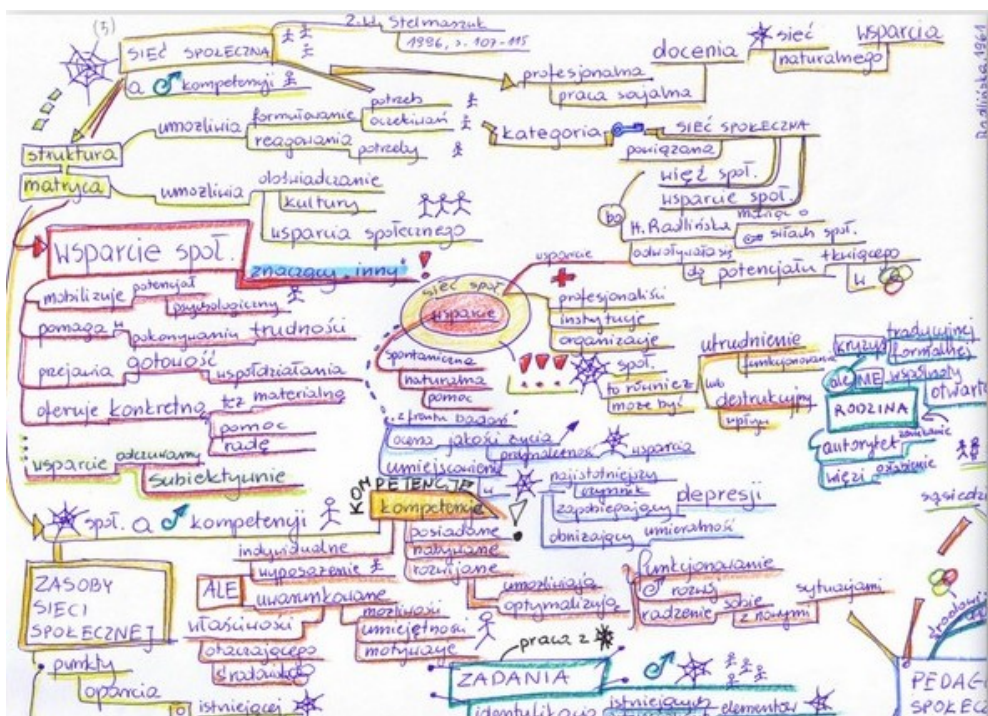 (3)
Z.W. Stelmaszuk
1996, s. 107-115
SIEĆ SPOŁECZNA
a kompetencji
profesjonalna
praca socjalna
docenia
sieć wsparcia
naturalnego
Radlińska 1961
struktura
umożliwia formułowanie potrzeb
oczekiwań
reagowania potrzeby
kategoria
SIEĆ SPOŁECZNA
powiązana
więź społ.
wsparcie społ.
matryca
umożliwia doświadczanie
kultury
wsparcia społecznego
bo
H. Radlińska mówiąc o
siłach społ.
odwoływała się
do potencjału tkwiącego
w
wsparcie społ.
znaczący inny
!
mobilizuje potencjał
psychologiczny
pomaga w pokonywaniu trudności
przejawia gotowość
współdziałania
oferuje konkretną też materialną
pomoc
radę
wsparcie odczuwamy
subiektywnie
sieć społ
wsparcie
wsparcie
profesjonaliści
instytucje
organizacje
spontaniczna
naturalna
pomoc
!!!
społ.
to również
może być
utrudnienie
funkcjonowania
lub
destrukcyjny
wpływ
kryzys tradycyjnej
formalnej
ale NIE wspólnoty
otwarte
RODZINA
autorytet
więzi osłabienie
z frontu badań
ocena jakości życia
przynależność wsparcia
umiejscowienie
w
najistotniejszy
czynnik
zapobiegający depresji
obniżający umieralność
KOMPETENCJE
kompetencje
!
posiadane
nabywane
rozwijane
umożliwiają
optymalizują
funkcjonowanie
rozwój
radzenie sobie
z nowymi
sytuacjami
społ. a kompetencji
indywidualne
wyposażenie
ALE
uwarunkowane
właściwości
otaczającego
środowiska
możliwości
umiejętności
motywacje
ZASOBY
SIECI
SPOŁECZNEJ
punkty
oparcia
istniejącej
praca z
ZADANIA
identyfikacja istniejących elementów
sąsiedzi
PEDAG
SPOŁEC